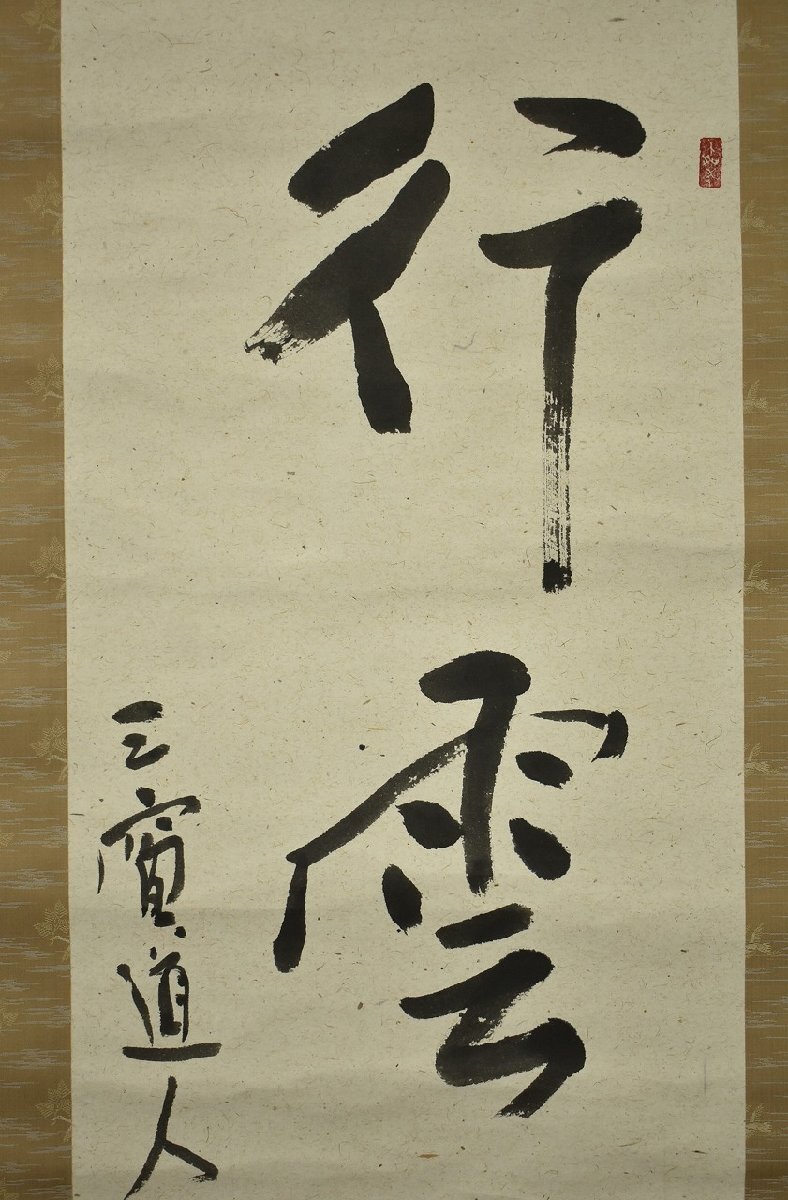 行雲
三寶道人